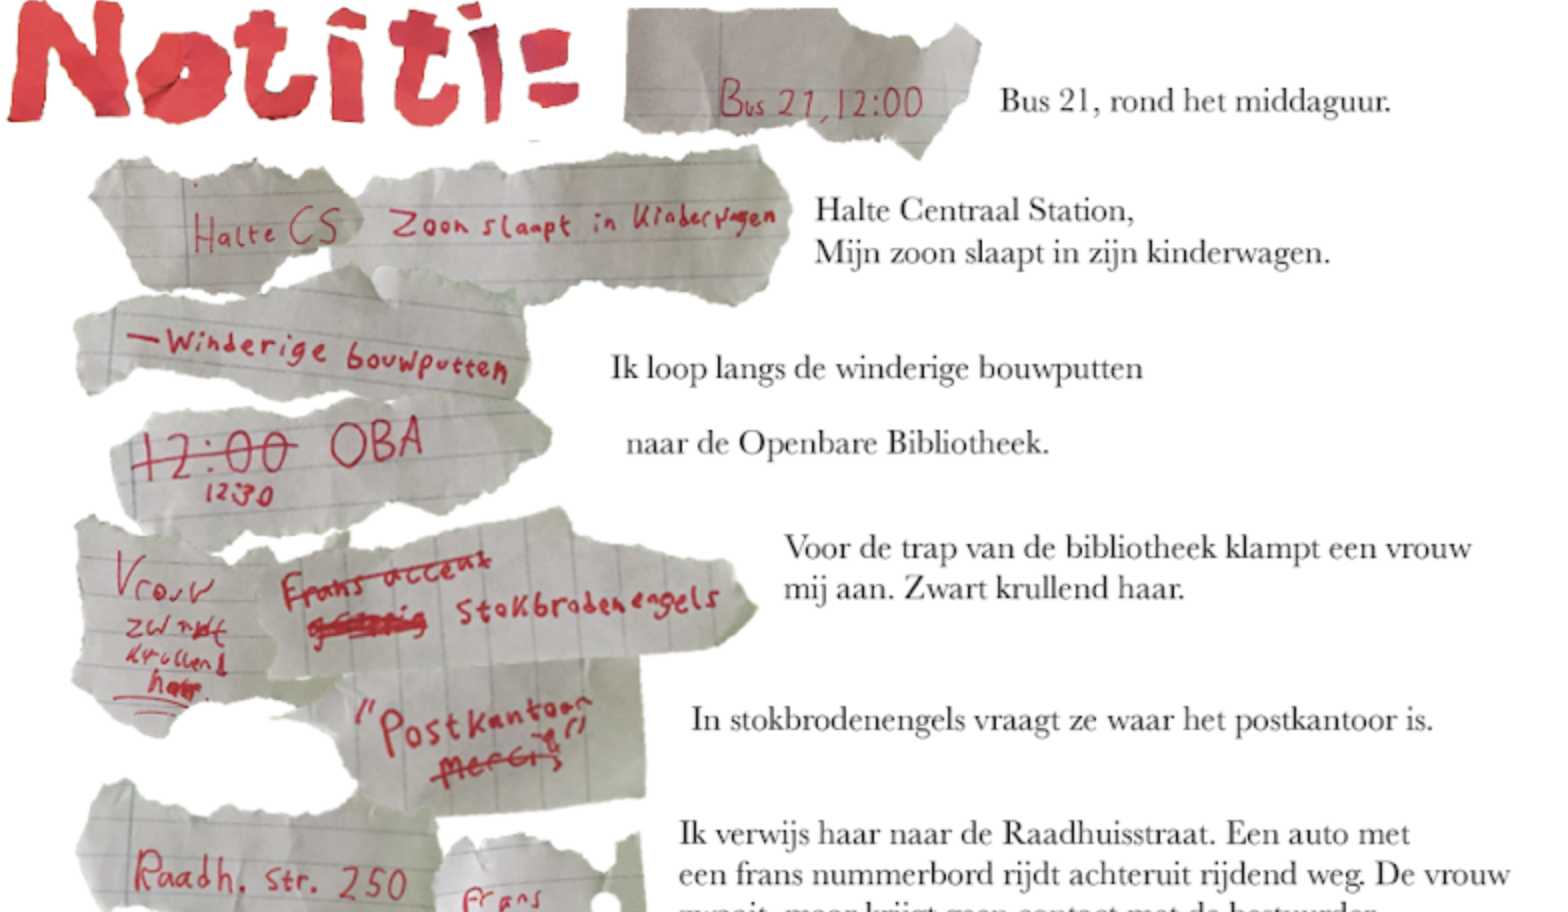 Notiti=
Bus 21, 12:00
Bus 21, rond het middaguur.
Halte CS
Zoon slaapt in Kinderwagen
Halte Centraal Station,
Mijn zoon slaapt in zijn kinderwagen.
—Winderige bouwputten
Ik loop langs de winderige bouwputten
12:00 OBA
12:30
naar de Openbare Bibliotheek.
Vrouw
zwart
krullend
haar.
Frans accent
stokbrodenengels
Voor de trap van de bibliotheek klampt een vrouw
mij aan. Zwart krullend haar.
"Postkantoor
merci
In stokbrodenengels vraagt ze waar het postkantoor is.
Raadh. str. 250
Frans
Ik verwijs haar naar de Raadhuisstraat. Een auto met
een frans nummerbord rijdt achteruit rijdend weg. De vrouw
zwaait, maar krijgt geen contact met de bestuurder